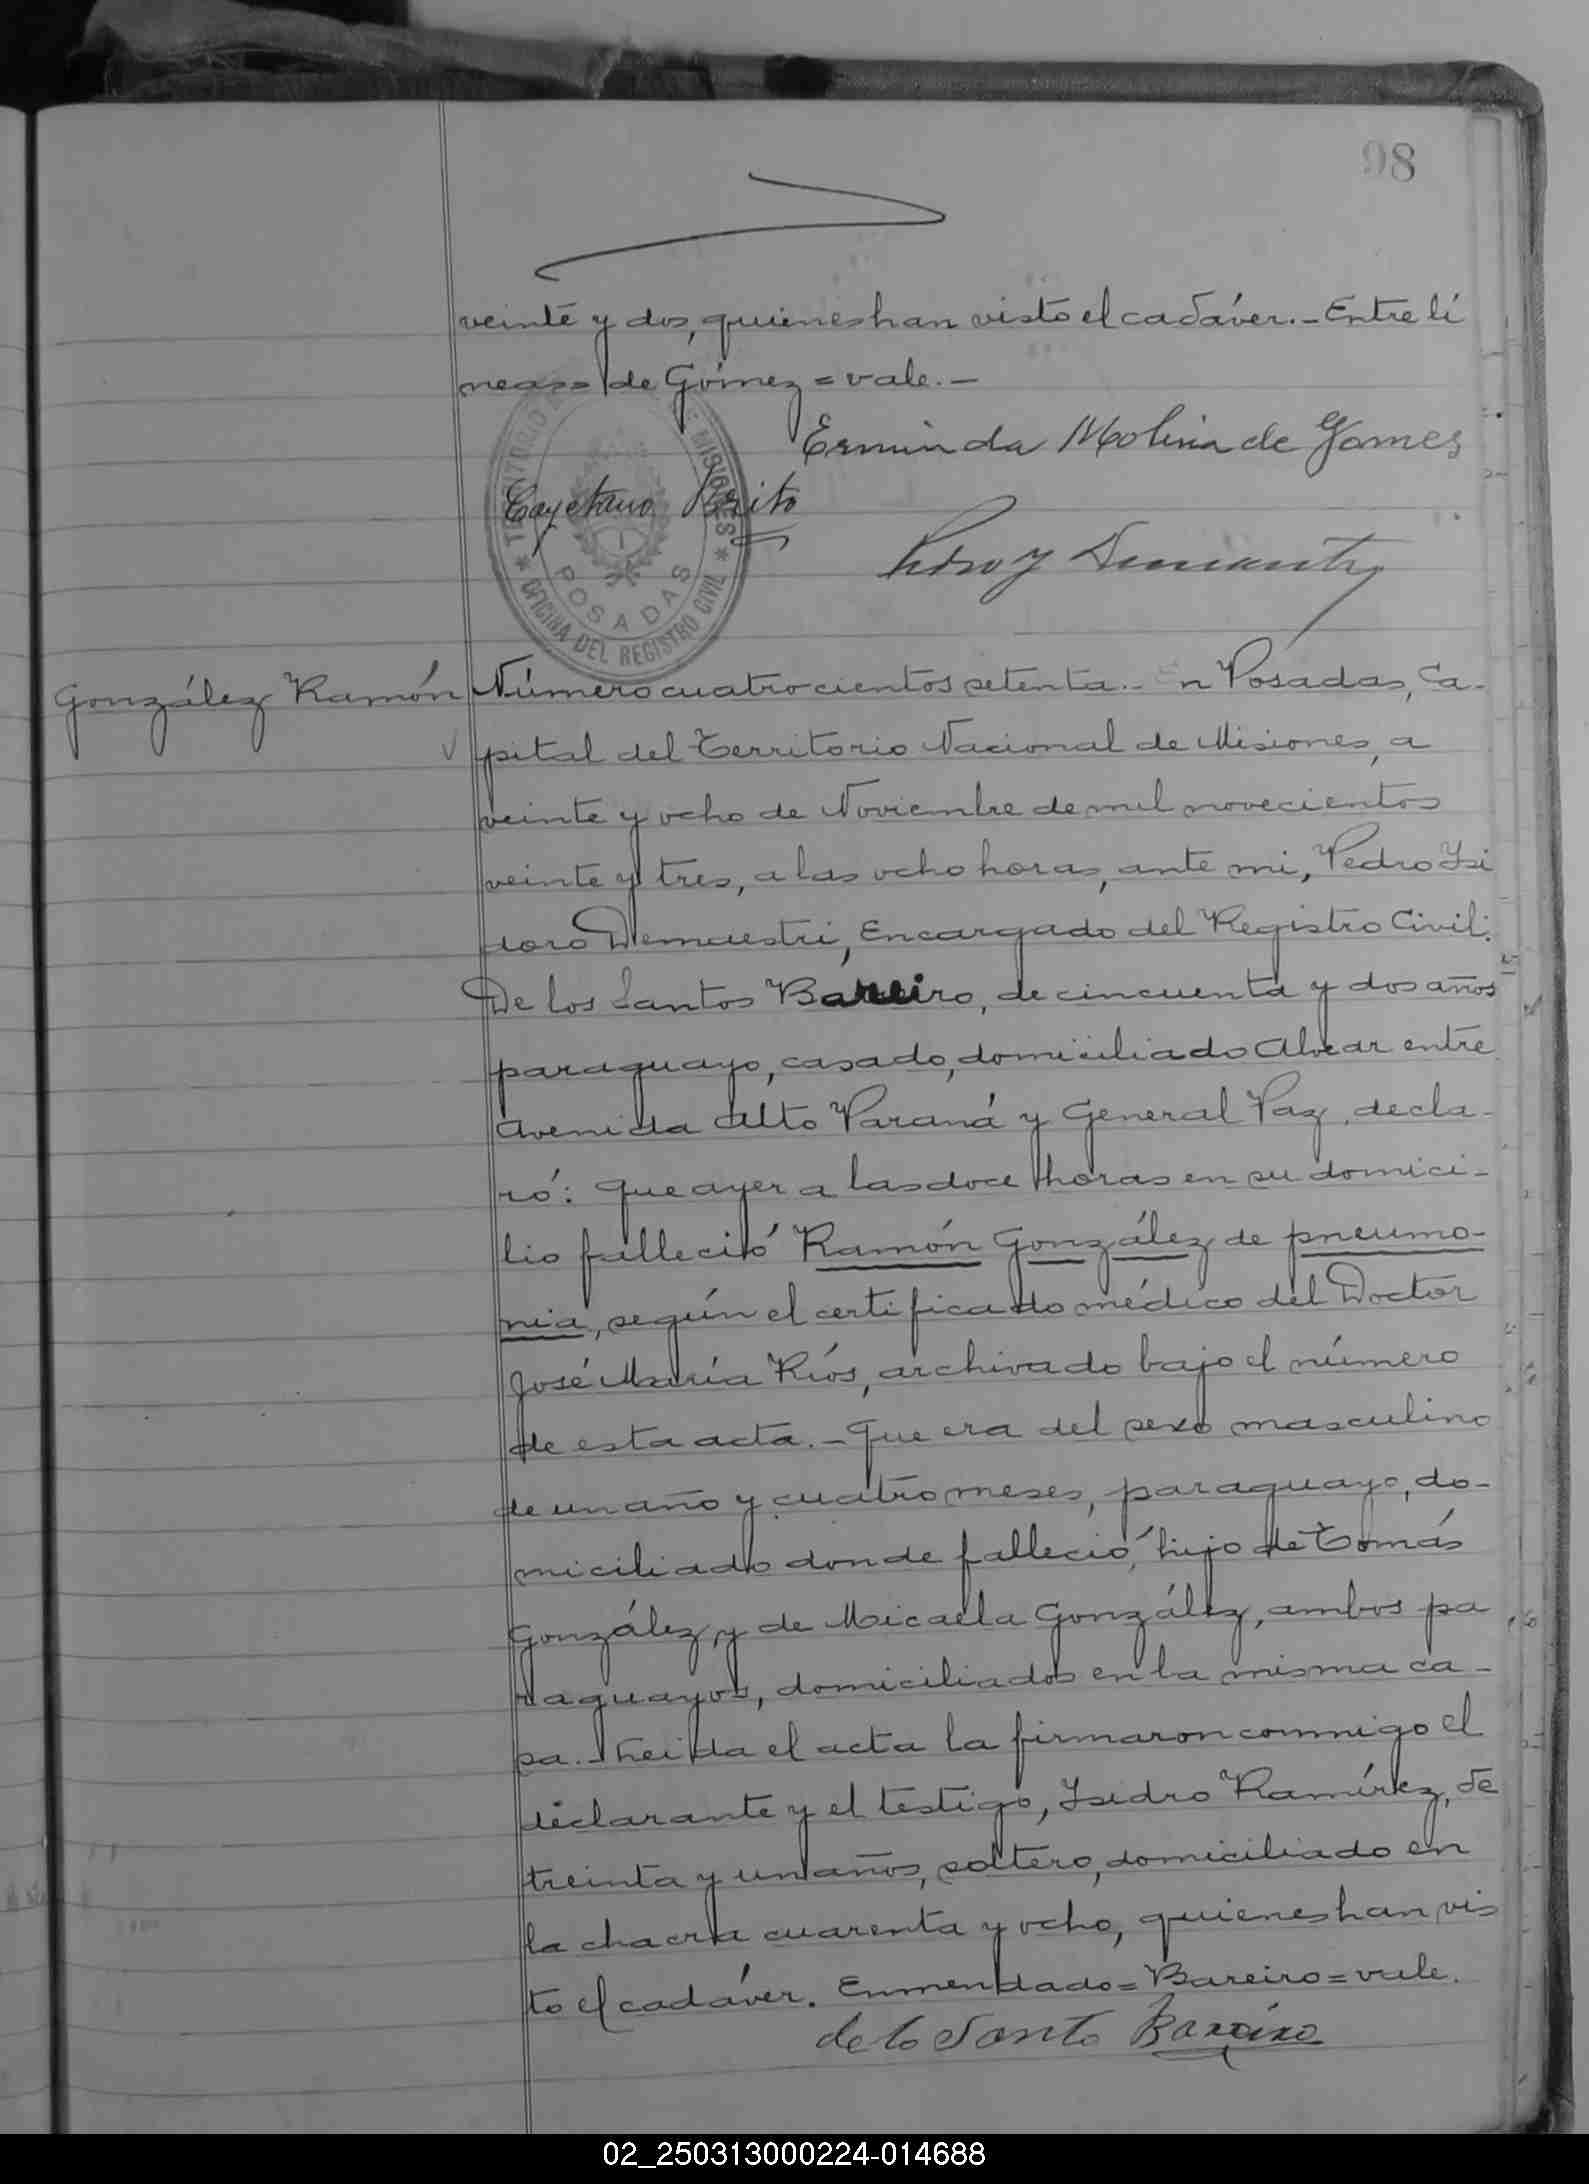 98
veinte y dos, quienes han visto el cadáver.- Entre lí
neas= de Gómez = vale.-
Erminda Molina de Gomes
Cayetano Brito
TERRITORIO DE MISIONES
POSADAS
* OFICINA DEL REGISTRO CIVIL *
González Ramón
Número cuatrocientos setenta.- En Posadas, Ca-
pital del Territorio Nacional de Misiones, a
veinte y ocho de Noviembre de mil novecientos
veinte y tres, a las ocho horas, ante mi, Pedro Isi
doro Demaestri, Encargado del Registro Civil:
De los Santos Bareiro, de cincuenta y dos años
paraguayo, casado, domiciliado Alvear entre
Avenida Alto Paraná y General Paz, decla-
ró: Que ayer a las doce horas en su domici-
lio falleció Ramón González de pneumo-
nia, según el certificado médico del Doctor
José María Ríos, archivado bajo el número
de esta acta.- Que era del sexo masculino
de un año y cuatro meses, paraguayo, do-
miciliado donde falleció, hijo de Tomás
González y de Micaela González, ambos pa
raguayos, domiciliados en la misma ca-
sa.- Leida el acta la firmaron conmigo el
declarante y el testigo, Isidro Ramírez, de
treinta y un años, soltero, domiciliado en
la chacra cuarenta y ocho, quienes han vis
to el cadáver. Enmendado= Bareiro= vale.
de lo Santo Bareiro
02_250313000224-014688